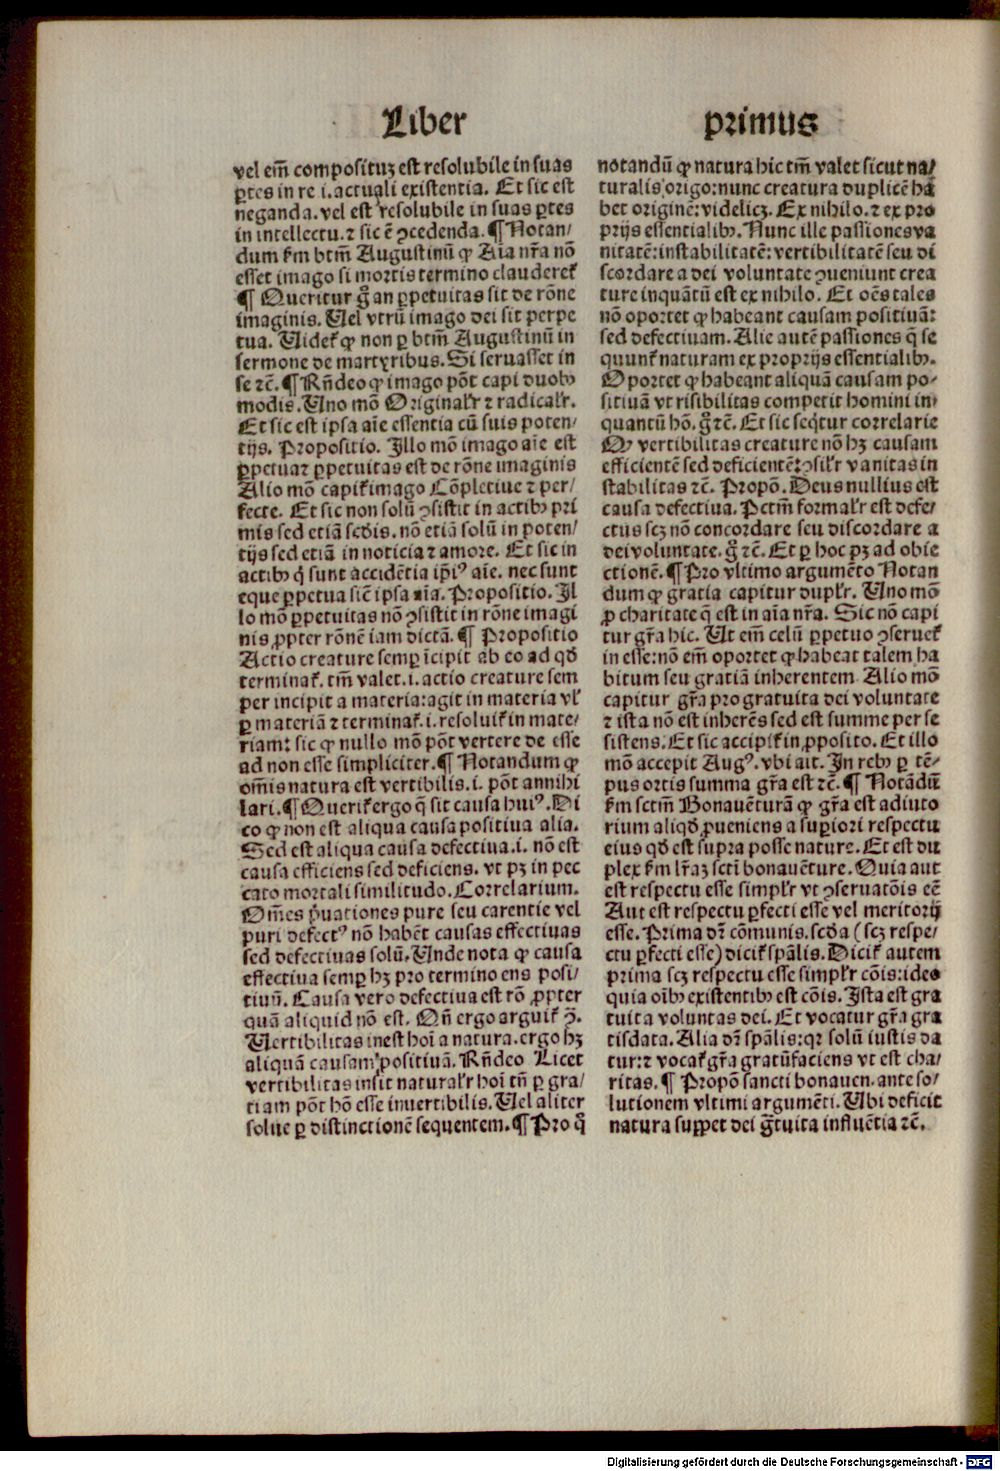 Liber primus
vel em̄ compositūꝫ est resolubile in suas
ꝑtes in re .i. actuali existentia. Et sic est
neganda. vel est resolubile in suas ꝑtes
in intellectu. ⁊ sic ē ꝯcedenda. ¶ Notan/
dum ẜm btm̄ Augustinū ꝙ Aīa nr̄a nō
esset imago si mortis termino clauderet̄
¶ Queritur ḡ an ꝑpetuitas sit de rōne
imaginis. Vel vtrū imago dei sit perpe
tua. Videt̄ ꝙ non ꝑ btm̄ Augustinū in
sermone de martyribus. Si seruasset in
se ⁊c̄. ¶ Rn̄deo ꝙ imago pōt capi duobꝰ
modis. Uno mō Originalr̄ ⁊ radicalr̄.
Et sic est ipsa aīe essentia cū suis poten/
tijs. Propositio. Illo mō imago aīe est
ꝑpetua⁊ ꝑpetuitas est de rōne imaginis
Alio mō capit̄ imago Cōpletiue ⁊ per/
fecte. Et sic non solū ꝯsistit in actibꝰ pri
mis sed etiā scd̄is. nō etiā solū in poten/
tijs sed etiā in noticia ⁊ amore. Et sic in
actibꝰ q̇ sunt accidētia ip̄iꝰ aīe. nec sunt
eque ꝑpetua sic̄ ipsa aīa. Propositio. Il
lo mō ꝑpetuitas nō ꝯsistit in rōne imagi
nis ꝓpter rōnē iam dictā. ¶ Propositio
Actio creature semꝑ īcipit ab eo ad qd̄
terminat̄. tm̄ valet .i. actio creature sem
per incipit a materia: agit in materia vl̄
ꝑ materiā ⁊ terminat̄ .i. resoluit̄ in mate/
riam: sic ꝙ nullo mō pōt vertere de esse
ad non esse simpliciter. ¶ Notandum ꝙ
om̄is natura est vertibilis .i. pōt annihi
lari. ¶ Querit̄ ergo q̄ sit causa huiꝰ. Di
co ꝙ non est aliqua causa positiua alia.
Sed est aliqua causa defectiua .i. nō est
causa efficiens sed deficiens. vt pꝫ in pec
cato mortali similitudo. Correlarium.
Om̄es p̄uationes pure seu carentie vel
puri defectꝰ nō habēt causas effectiuas
sed defectiuas solū. Unde nota ꝙ causa
effectiua semꝑ hꝫ pro termino ens posi/
tiuū. Causa vero defectiua est rō ꝓpter
quā aliquid nō est. Qn̄ ergo arguit̄ ꝯ̄.
Vertibilitas inest hoī a natura. ergo hꝫ
aliquā causam positiuā. Rn̄deo Licet
vertibilitas insit naturalr̄ hoī tn̄ ꝑ gra/
tiam pōt hō esse inuertibilis. Vel aliter
solue ꝑ distinctionē sequentem. ¶ Pro q̄
notandū ꝙ natura hic tm̄ valet sicut na/
turalis origo: nunc creatura duplicē ha
bet originē: videlicꝫ. Ex nihilo. ⁊ ex pro
prijs essentialibꝰ. Nunc ille passiones va
nitatē: instabilitatē: vertibilitatē seu di
scordare a dei voluntate ꝯueniunt crea
ture inquātū est ex nihilo. Et oēs tales
nō oportet ꝙ habeant causam positiuā:
sed defectiuam. Alie autē passiones q̄ se
quunt̄ naturam ex proprijs essentialibꝰ.
Oportet ꝙ habeant aliquā causam po/
sitiuā vt risibilitas competit homini in/
quantū hō. ḡ ⁊c̄. Et sic seq̇tur correlarie
Ꝙ vertibilitas creature nō hꝫ causam
efficientē sed deficientē: ꝯsilr̄ vanitas in
stabilitas ⁊c̄. Propō. Deus nullius est
causa defectiua. Pctm̄ formalr̄ est defe/
ctus scꝫ nō concordare seu discordare a
dei voluntate. ḡ ⁊c̄. Et ꝑ hoc pꝫ ad obie
ctionē. ¶ Pro vltimo argumēto Notan
dum ꝙ gratia capitur duplr̄. Uno mō
ꝓ charitate q̄ est in aīa nr̄a. Sic nō capi
tur gr̄a hic. Ut em̄ celū ꝑpetuo ꝯseruet̄
in esse: nō em̄ oportet ꝙ habeat talem ha
bitum seu gratiā inherentem Alio mō
capitur gr̄a pro gratuita dei voluntate
⁊ ista nō est inherēs sed est summe per se
sistens. Et sic accipit̄ in ꝓposito. Et illo
mō accepit Augꝰ. vbi ait. In rebꝰ ꝑ tē/
pus ortis summa gr̄a est ⁊c̄. ¶ Notādū
ẜm sctm̄ Bonauēturā ꝙ gr̄a est adiuto
rium aliqd̄ ꝓueniens a suꝑiori respectu
eius qd̄ est supra posse nature. Et est du
plex ẜm lr̄aꝫ scti bonauēture. Quia aut
est respectu esse simplr̄ vt ꝯseruatōis eē
Aut est respectu ꝑfecti esse vel meritorij
esse. Prima dr̄ cōmunis. scd̄a (scꝫ respe/
ctu ꝑfecti esse) dicit̄ spālis. Dicit̄ autem
prima scꝫ respectu esse simplr̄ cōis: ideo
quia oībꝰ existentibꝰ est cōis. Ista est gra
tuita voluntas dei. Et vocatur gr̄a gra
tisdata. Alia dr̄ spālis: qꝛ solū iustis da
tur: ⁊ vocat̄ gr̄a gratūfaciens vt est cha/
ritas. ¶ Propō sancti bonauen. ante so/
lutionem vltimi argumēti. Ubi deficit
natura supꝑet dei g̃tuita influētia ⁊c̄.
Digitalisierung gefördert durch die Deutsche Forschungsgemeinschaft - DFG